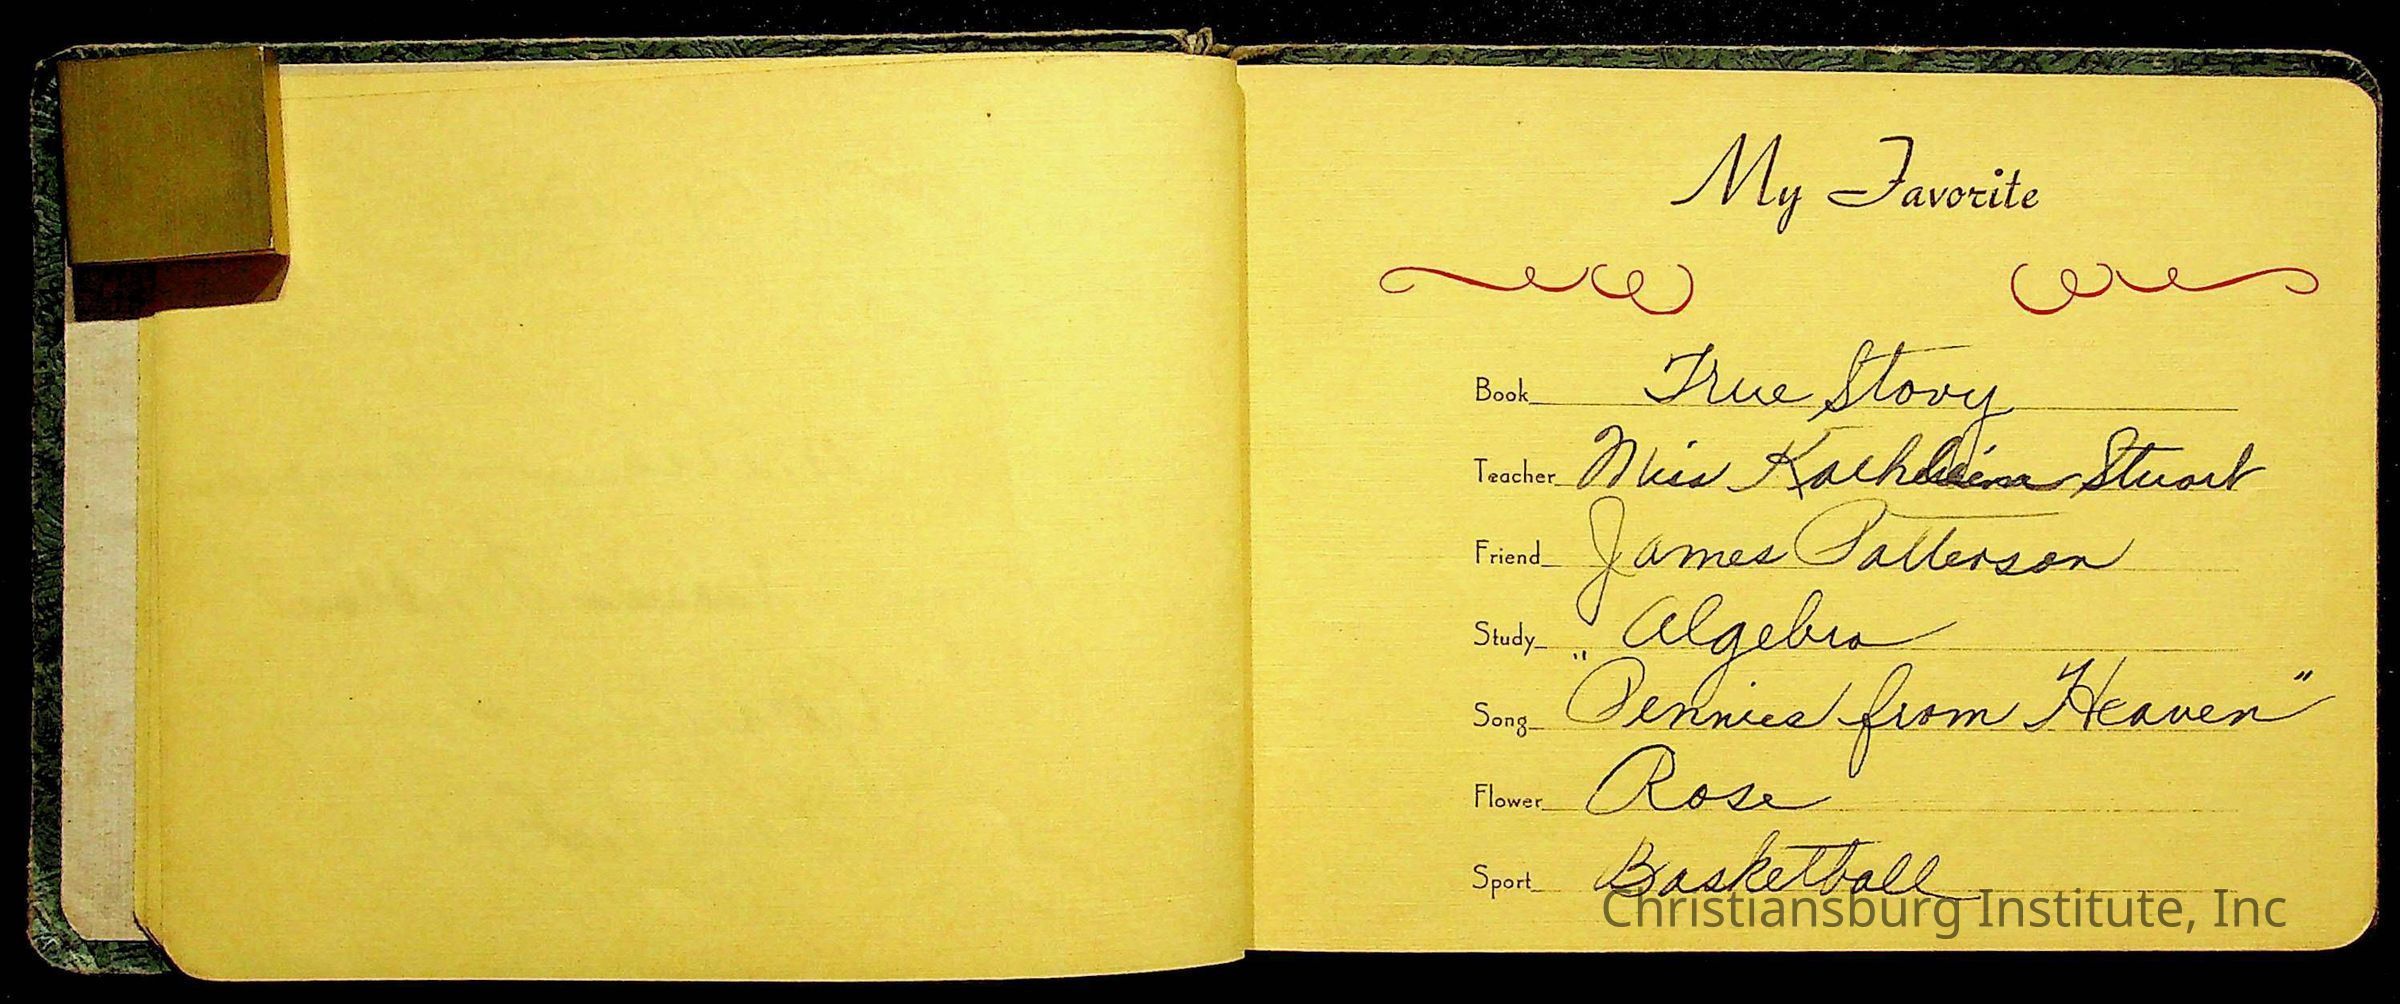 My Favorite
Book True Story
Teacher Miss Stuart
Friend James Patterson
Study Algebra
Song "Pennies from Heaven"
Flower Rose
Sport Basketball
Christiansburg Institute, Inc